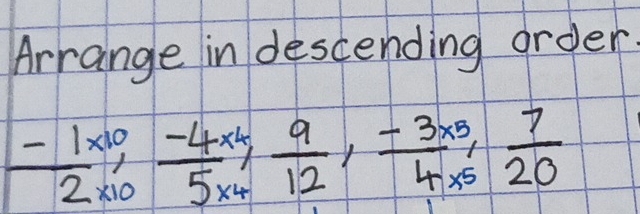 Arrange in descending order.
-1×10/2×10, -4×4/5×4, 9/12, -3×5/4×5, 7/20